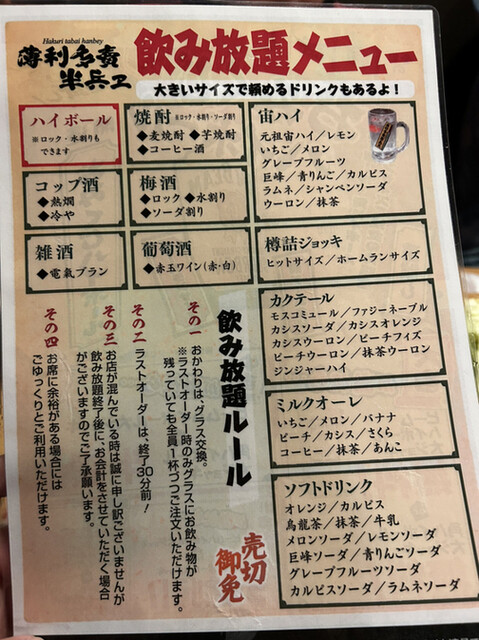 Hakuri tabai hanbey
薄利多賣
半兵ヱ
飲み放題メニュー
大きいサイズで頼めるドリンクもあるよ!
ハイボール
※ロック・水割りも
できます
焼酎 ※ロック・水割り・ソーダ割り
◆麦焼酎 ◆芋焼酎
◆コーヒー酒
宙ハイ
元祖宙ハイ/レモン
いちご/メロン
グレープフルーツ
巨峰/青りんご/カルピス
ラムネ/シャンペンソーダ
ウーロン/抹茶
コップ酒
◆熱燗
◆冷や
梅酒
◆ロック ◆水割り
◆ソーダ割り
雑酒
◆電氣ブラン
葡萄酒
◆赤玉ワイン(赤・白)
樽詰ジョッキ
ヒットサイズ/ホームランサイズ
カクテール
モスコミュール/ファジーネーブル
カシスソーダ/カシスオレンジ
カシスウーロン/ピーチフィズ
ピーチウーロン/抹茶ウーロン
ジンジャーハイ
ミルクオーレ
いちご/メロン/バナナ
ピーチ/カシス/さくら
コーヒー/抹茶/あんこ
ソフトドリンク
オレンジ/カルピス
烏龍茶/抹茶/牛乳
メロンソーダ/レモンソーダ
巨峰ソーダ/青りんごソーダ
グレープフルーツソーダ
カルピスソーダ/ラムネソーダ
飲み放題ルール
その一 おかわりは、グラス交換。
※ラストオーダー時のみグラスにお飲み物が
残っていても全員1杯づつご注文いただけます。
その二 ラストオーダーは、終了30分前!
その三 お店が混んでいる時は誠に申し訳ございませんが
飲み放題終了後に、お会計をさせていただく場合
がございますのでご了承願います。
その四 お席に余裕がある場合には
ごゆっくりとご利用いただけます。
売切
御免